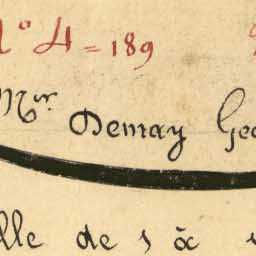 No 4 = 189
Mr Demay Geo
lle de s à